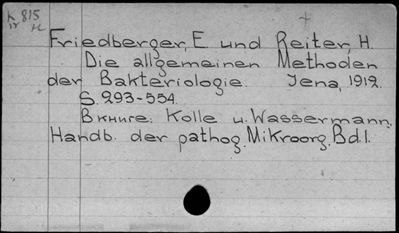 K 815
Friedberger, E und Reiter, H.
Die allgemeinen Methoden
der Bakteriologie. Jena, 1912.
S. 293-554.
В книге: Kolle u. Wassermann,
Handb. der pathog. Mikroorg. Bd.I.